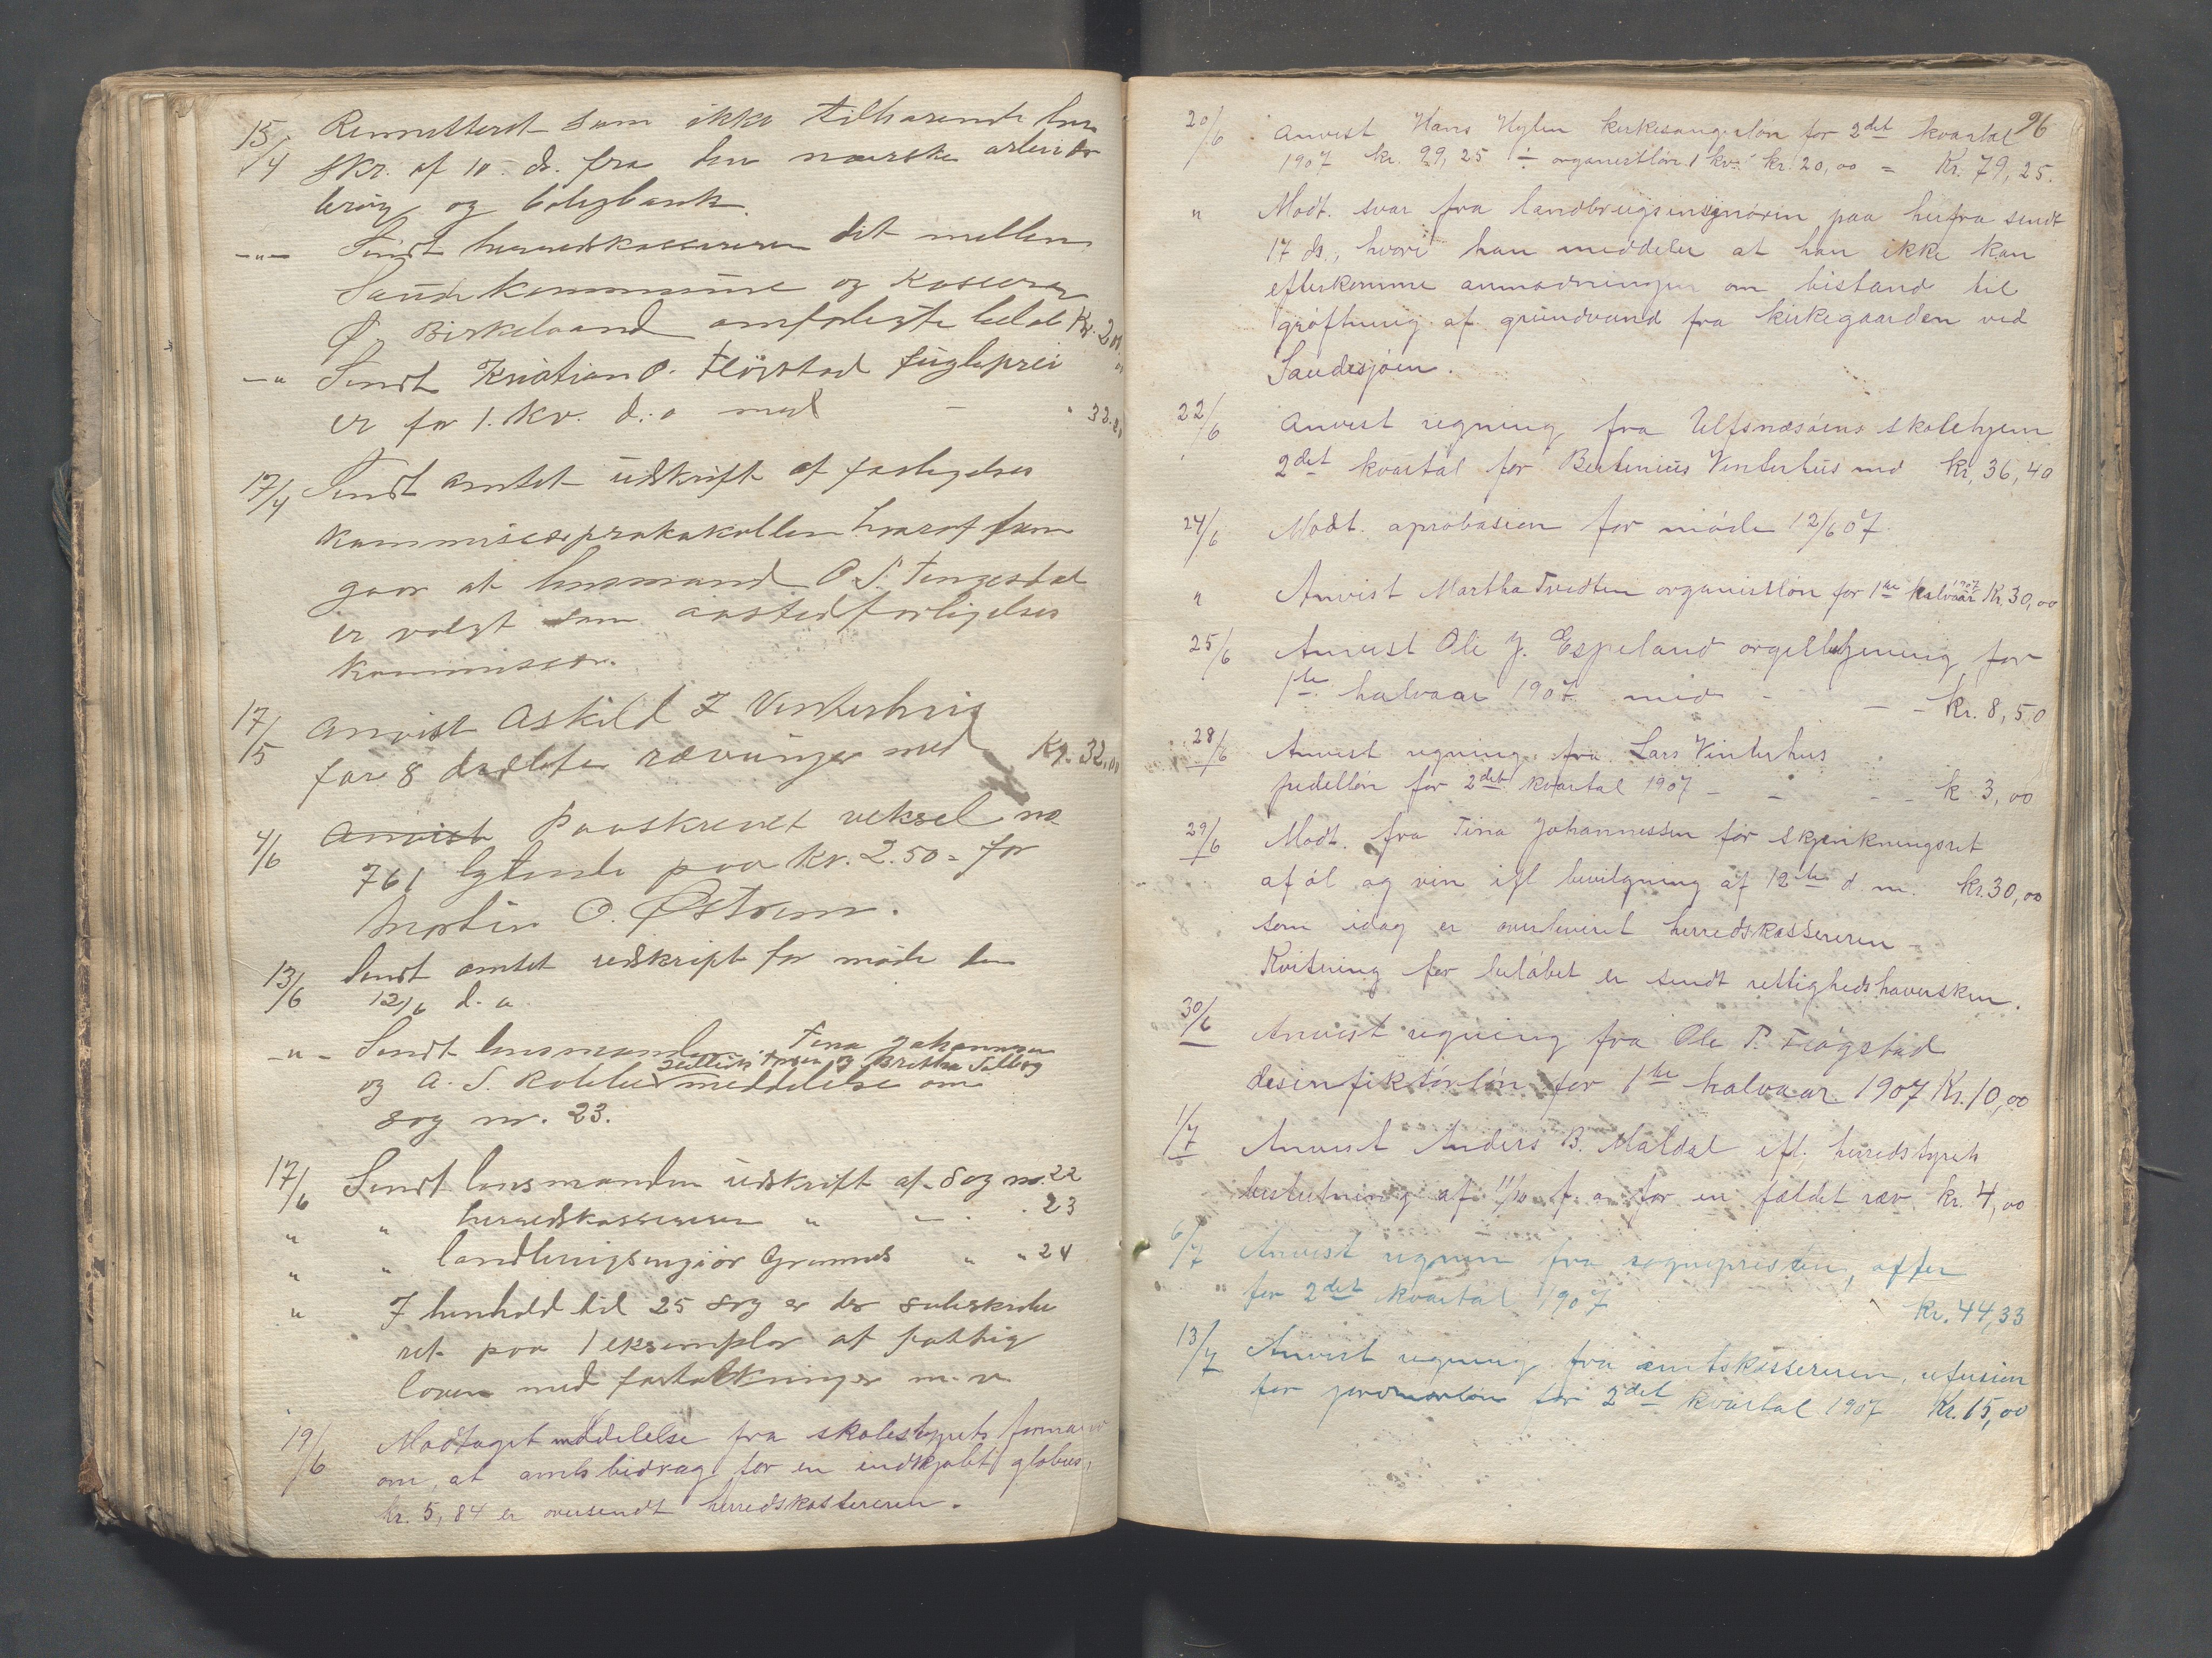 15/4 Remitteret som ikke tilhørende her
skr. af 10. ds. fra den norske arbeider
brug og boligbank.
-"- Sendt herredskassereren det mellem
Saude kommune og Kasserer
O. Birkeland omforente beløb Kr. 20
-" Sendt Kristian O. Fløgstad fuglepræmi
er for 1. kv. d. a med - " 33.20
17/4 Sendt amtet udskrift af forligelses
kommissæprotokollen hvoraf frem
gaar at lensmand O. S. Tengesdal
er valgt som aastedforligelses
kommissær.
17/5 Anvist Askild I Vinterhus
for 8 dræbte rævunger med Kr. 32,00
4/6 Anvist Paaskrevet veksel no
761 lydende paa kr. 2.50 = for
Martin O. Østrem.
13/6 Sendt amtet udskript for møde den
12/6 d. a.
-"- Sendt lensmanden, Tina Johannesen
og Britha Solberg
og A. S. meddelelse om
sag nr. 23.
17/6 Sendt lensmanden udskrift af sag no. 22
" " herredskassereren " - . 23
" " landbrugsingiør Grannes " " 24
" I henhold til 25 sag er der subskribe
ret paa 1 eksemplar af fattig
loven med fortolkninger m. v.
19/6 Modtaget meddelelse fra skolestyrets formand
om, at amtsbidrag for en indkjøbt globus,
kr. 5,84 er oversendt herredskassereren.
96
20/6 Anvist Hans Hylen kirkesangerløn for 2det kvartal
1907 kr. 29,25 ÷ organistløn 1 kv. kr. 20,00 = Kr. 79,25.
" Modt. svar fra landbrugsingeniøren paa herfra sendt
17 ds., hvori han meddeler at han ikke kan
efterkomme anmodningen om bistand til
grøftning af grundvand fra kirkegaarden ved
Saudesjøen.
22/6 Anvist regning fra Ulfsnæsøens skolehjem
2det kvartal for Bertinius Vinterhus med kr. 36,40
24/6 Modt. aprobasion for møde 12/6 07.
" Anvist Martha Tvedten organistløn for 1ste halvaar 1907 Kr. 30,00
25/6 Anvist Ole J. Espeland orgelbetjening for
1ste halvaar 1907 med - - - kr. 8,50
28/6 Anvist regning fra Lars Vinterhus
pedelløn for 2det kvartal 1907 - - - - k. 3,00
29/6 Modt. fra Tina Johannessen for skjenkningsret
af øl og vin ifl bevilgning af 12te d. m. kr. 30,00
som idag er overleveret herredskassereren -
Kvitering for beløbet er sendt rettighedshaversken.
30/6 Anvist regning fra Ole P. Fløgstad
desinfiktørløn for 1ste halvaar 1907 Kr. 10,00
1/7 Anvist Anders B. Maldal ifl. herredstyrets
beslutning af 11/10 f. a. for en fældet ræv kr. 4,00
6/7 Anvist regnin fra sognepresten, offer
for 2det kvartal 1907 kr. 44,33
13/7 Anvist regning fra amtskassereren, refusion
for jordmorløn for 2det kvartal 1907 Kr. 15,00